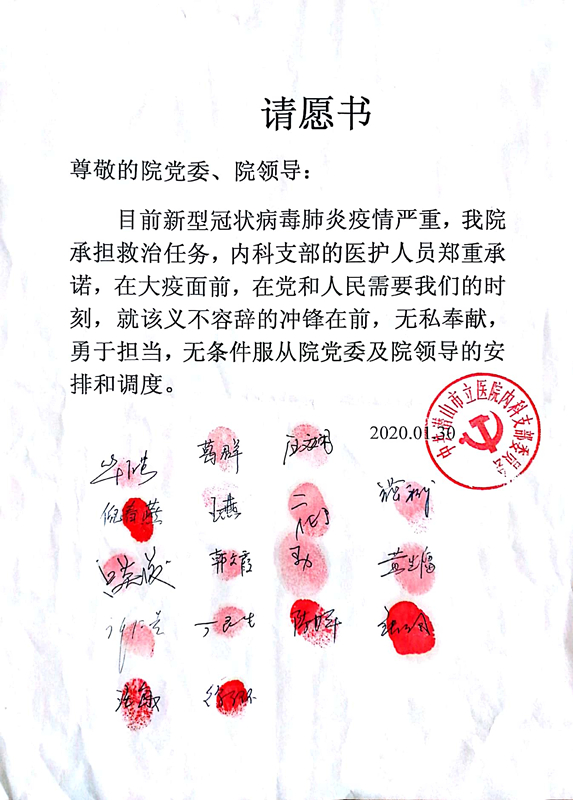 请愿书
尊敬的院党委、院领导：
目前新型冠状病毒肺炎疫情严重，我院
承担救治任务，内科支部的医护人员郑重承
诺，在大疫面前，在党和人民需要我们的时
刻，就该义不容辞的冲锋在前，无私奉献，
勇于担当，无条件服从院党委及院领导的安
排和调度。
2020.01.30
中共潜山市立医院内科支部委员会
葛群
王燕